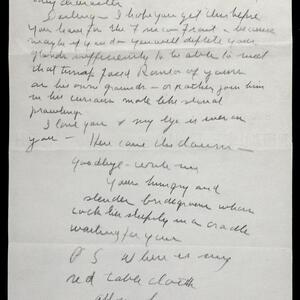 Darling — I hope you get this before
you leave for the Front — because
maybe if you do — you will deplete your
glands sufficiently to be able to meet
that turnip faced of yours
on his own grounds — or rather join him
in his male like sexual
prowling.
I love you & my eye is ever on
you — Here comes the dawn —
Goodbye — write me
Your hungry and
slender bridegroom whose
cock lies sleepily in a cradle
waiting for your
P S Where is my
red table cloth